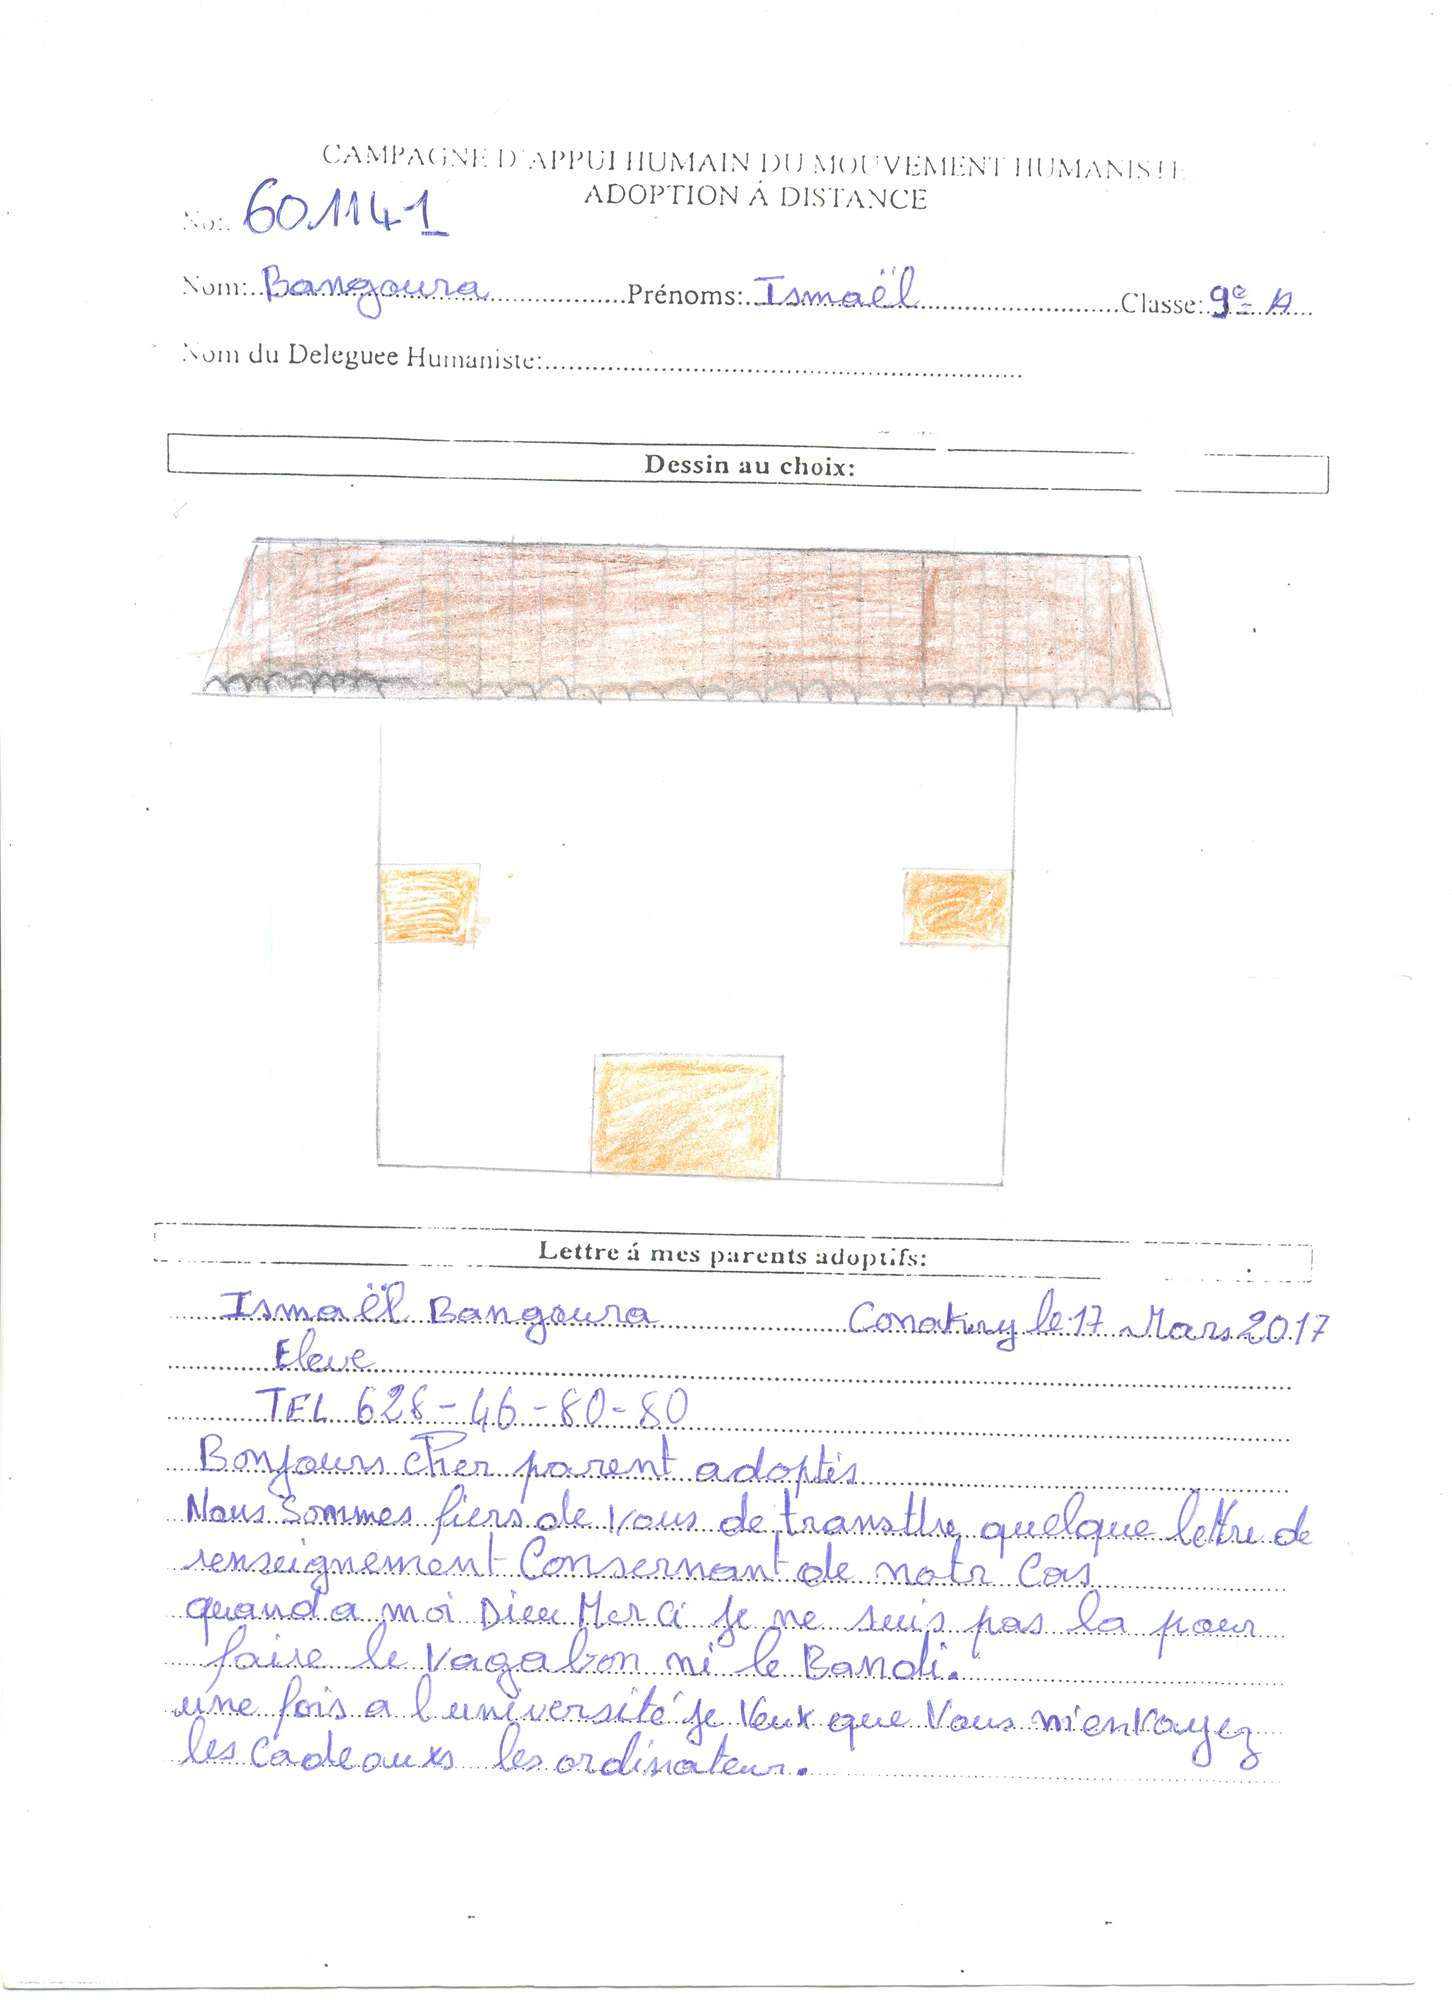 CAMPAGNE D'APPUI HUMAIN DU MOUVEMENT HUMANISTE
ADOPTION Á DISTANCE
No: 601141-1
Nom: Bangoura Prénoms: Ismaël Classe: 9e A
Nom du Deleguee Humaniste:
Dessin au choix:
Lettre á mes parents adoptifs:
Ismaël Bangoura Conakry le 17 Mars 2017
Eleve
TEL 628-46-80-80
Bonjours cher parent adoptis
Nous Sommes fiers de vous de quelque lettre de
renseignement Consernant de notr Cas
quand a moi Dieu Merci je ne suis pas la pour
faire le vagabon ni le Bandi.
une fois a l'université je veux que Vous m'envoyez
les cadeauxs les ordinateur.